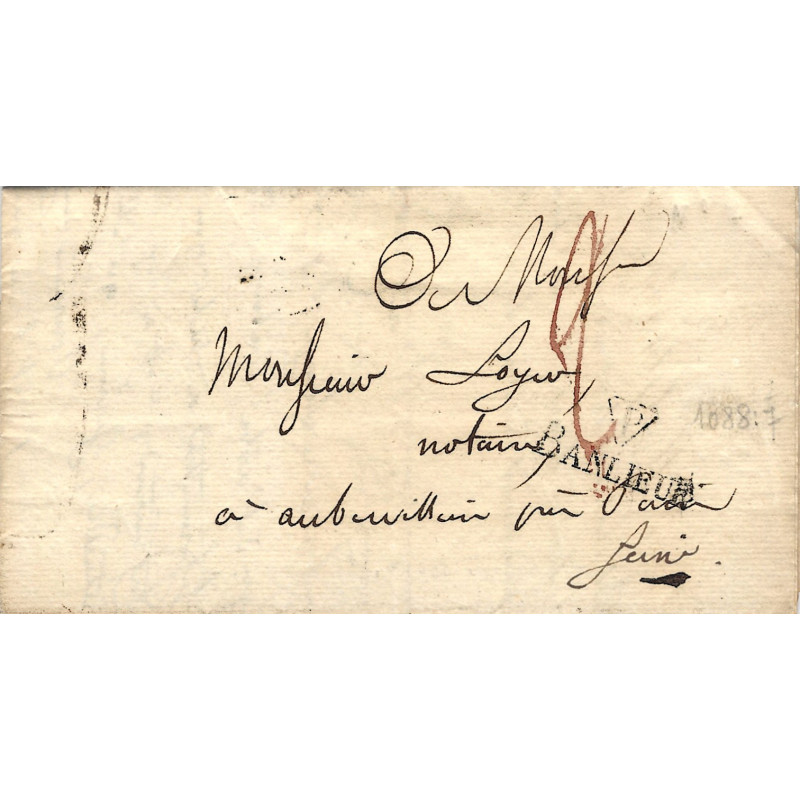 Monsieur Loyer
notaire
à aubervilliers près Paris
Seine.
P
BANLIEUE
1088:7